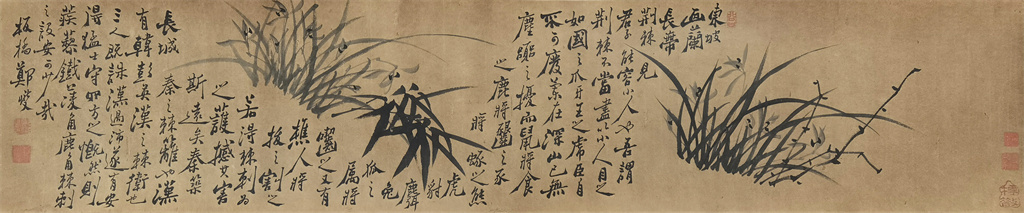 東坡
画蘭
長帶
荆棘見
君子能容小人也吾謂
荆棘不當盡以小人目之
如國之爪牙王之虎臣自
不可廢蘭在深山已無
塵囂之擾而鼠將食
之鹿將之豕
將之熊
虎
豺
麛
兔
狐之
属將
嚙之又有
樵人將
拔之割之
若得棘刺為
之護撼其害
斯遠矣秦築
長城秦之棘籬也漢
有韓彭英漢之棘衛也
三人既誅漢高過沛遂有安
得猛士守四方之慨然則
蒺藜鐵菱角鹿角棘刺
之設安可少哉
板橋鄭燮